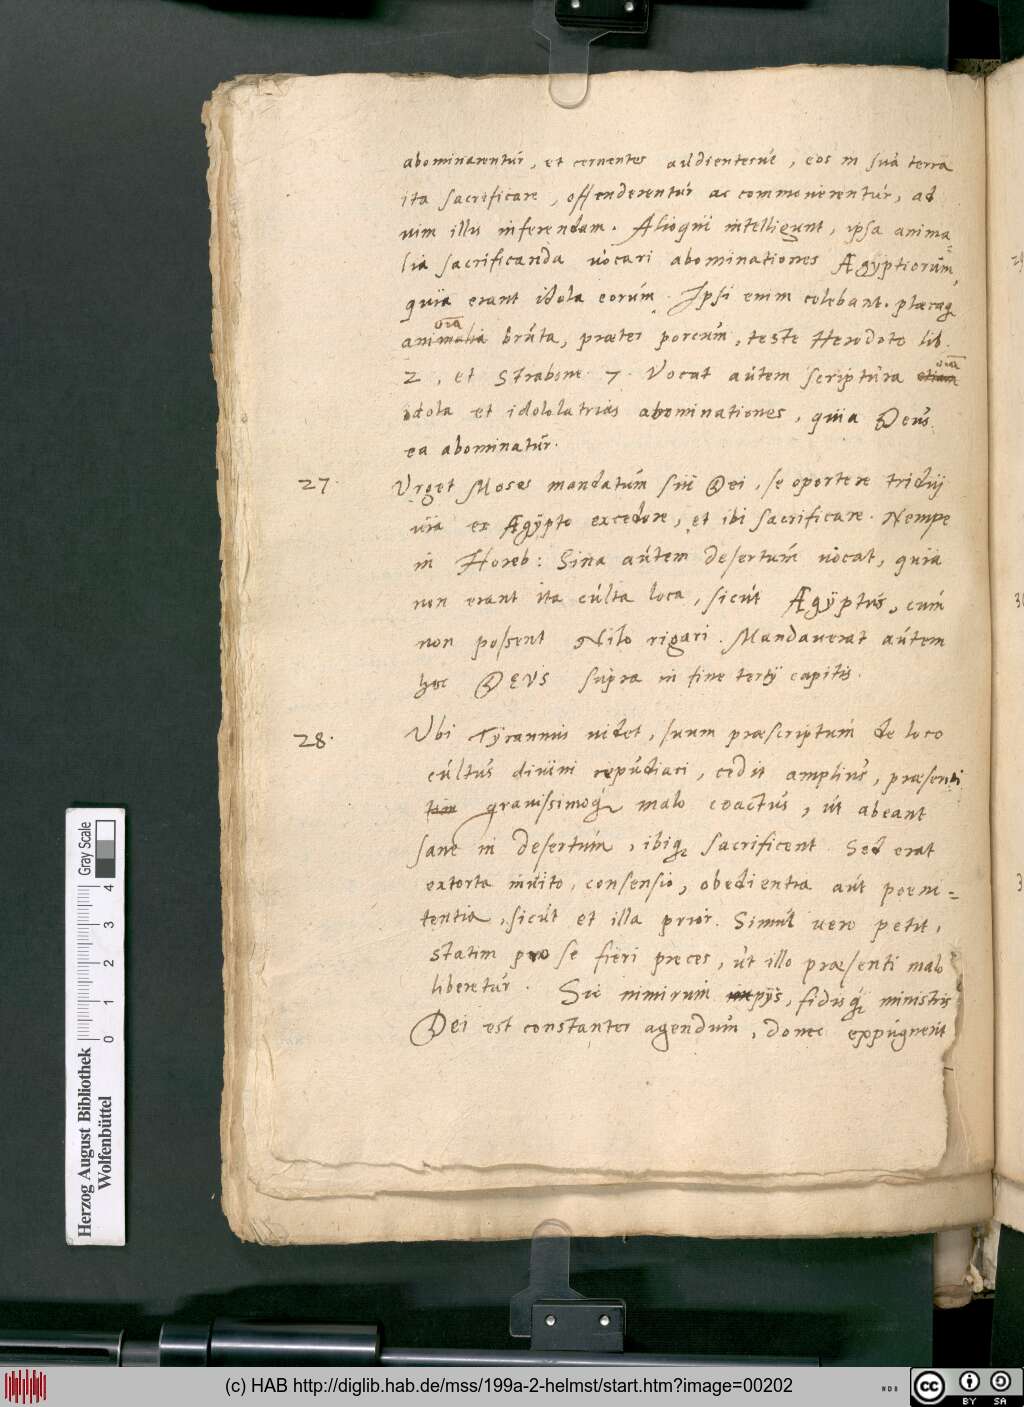 abominarentur, et cernentes audientesue, eos in sua terra
ita sacrificare, offenderentur ac commouerentur, ad
uim illis inferendam. Alioqui intelligunt, ipsa anima=
lia sacrificanda uocari abominationes Ægyptiorum,
quia erant idola eorum. Ipsi enim colebant pleraque
oĩa
animalia bruta, præter porcum, teste Herodoto lib.
oĩa
2, et Strabone 7. Vocat autem scriptura etiam
idola et idololatrias abominationes, quia Deus
ea abominatur.
27. Vrget Moses mandatum sui Dei, se oportere tridui
uia ex Ægypto excedere, et ibi sacrificare. Nempe
in Horeb: Sina autem desertum uocat, quia
non erant ita culta loca, sicut Ægyptus, cum
non possent Nilo rigari. Mandauerat autem
hoc DEVS supra in fine tertij capitis.
28. Vbi Tyrannus uidet, suum præscriptum de loco
cultus diuini repudiari, cedit amplius, præsenti
tam grauissimoq; malo coactus, ut abeant
sane in desertum, ibiq; sacrificent. Sed erat
extorta inuito, consensio, obedientia aut poeni=
tentia, sicut et illa prior. Simul uero petit,
statim pro se fieri preces, ut illo præsenti malo
liberetur. Sic nimirum impijs, fidisq; ministris
Dei est constanter agendum, donec expugnent
Herzog August Bibliothek
Wolfenbüttel
0 1 2 3 4
Gray Scale
(c) HAB http://diglib.hab.de/mss/199a-2-helmst/start.htm?image=00202
cc BY SA